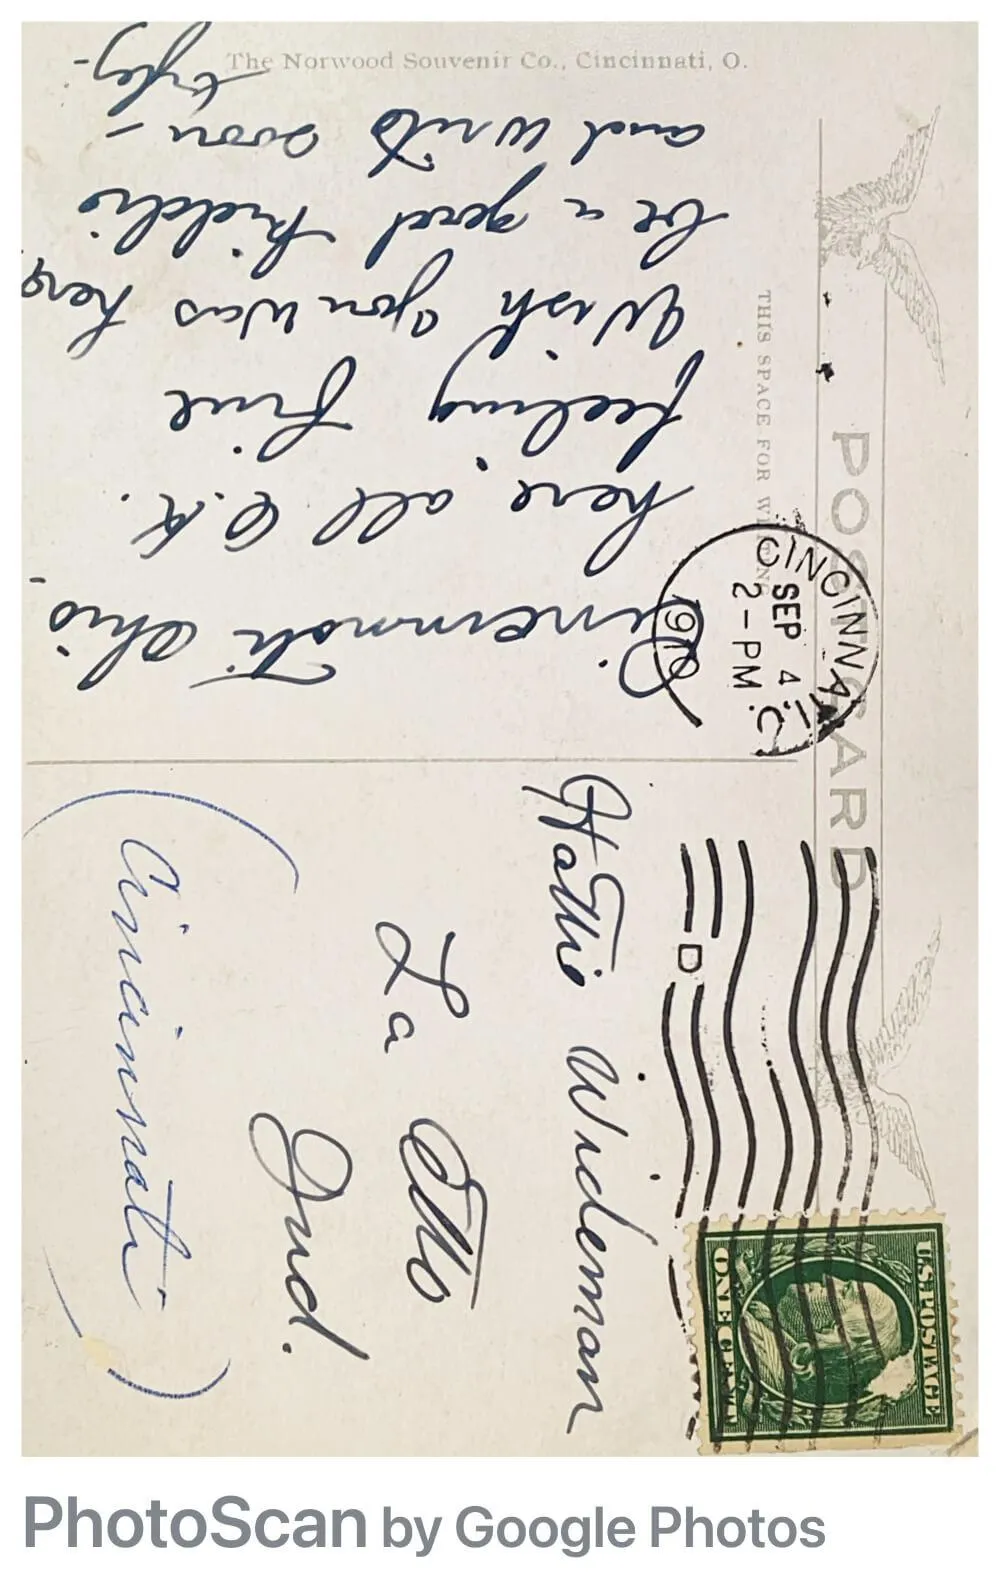 The Norwood Souvenir Co., Cincinnati, O.
POST CARD
THIS SPACE FOR WRITING
CINCINNATI
SEP 4
2-PM
1910
D
U.S. POSTAGE
ONE CENT
Cincinnati Ohio.
here all O.K.
feeling fine
Wish you was here
be a good kiddie
and write soon -
Hattie Wideman
La Otto
Ind.
(Cincinnati)
PhotoScan by Google Photos